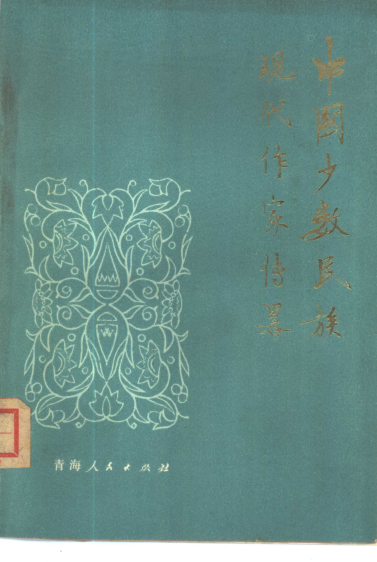 中国少数民族
现代作家传略
青海人民出版社